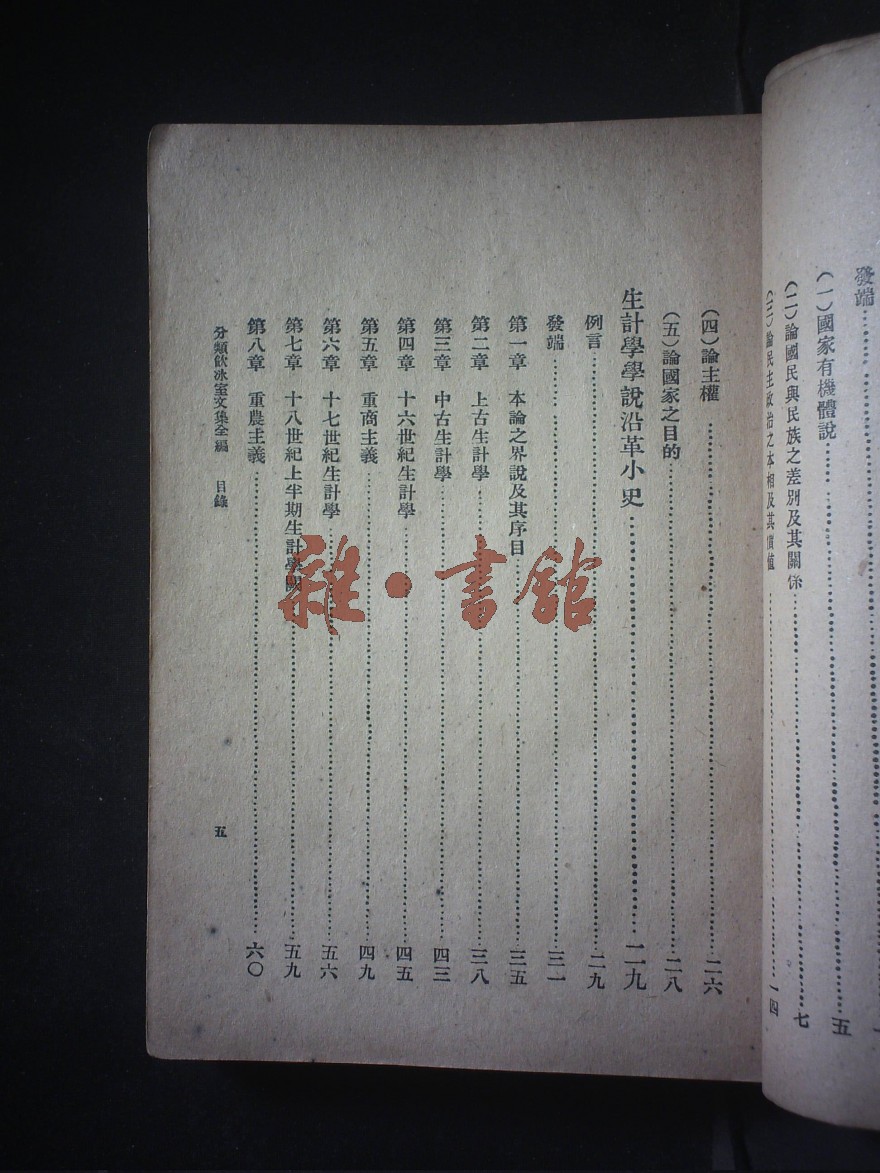 發端
(一)國家有機體說 五
(二)論國民與民族之差別及其關係 七
(三)論民主政治之本相及其價值 一四
(四)論主權 二六
(五)論國家之目的 二八
生計學學說沿革小史 二九
例言 二九
發端 三一
第一章 本論之界說及其序目 三五
第二章 上古生計學 三八
第三章 中古生計學 四三
第四章 十六世紀生計學 四五
第五章 重商主義 四九
第六章 十七世紀生計學 五六
第七章 十八世紀上半期生計學 五九
第八章 重農主義 六〇
分類飲冰室文集全編 目錄 五
雜·書館